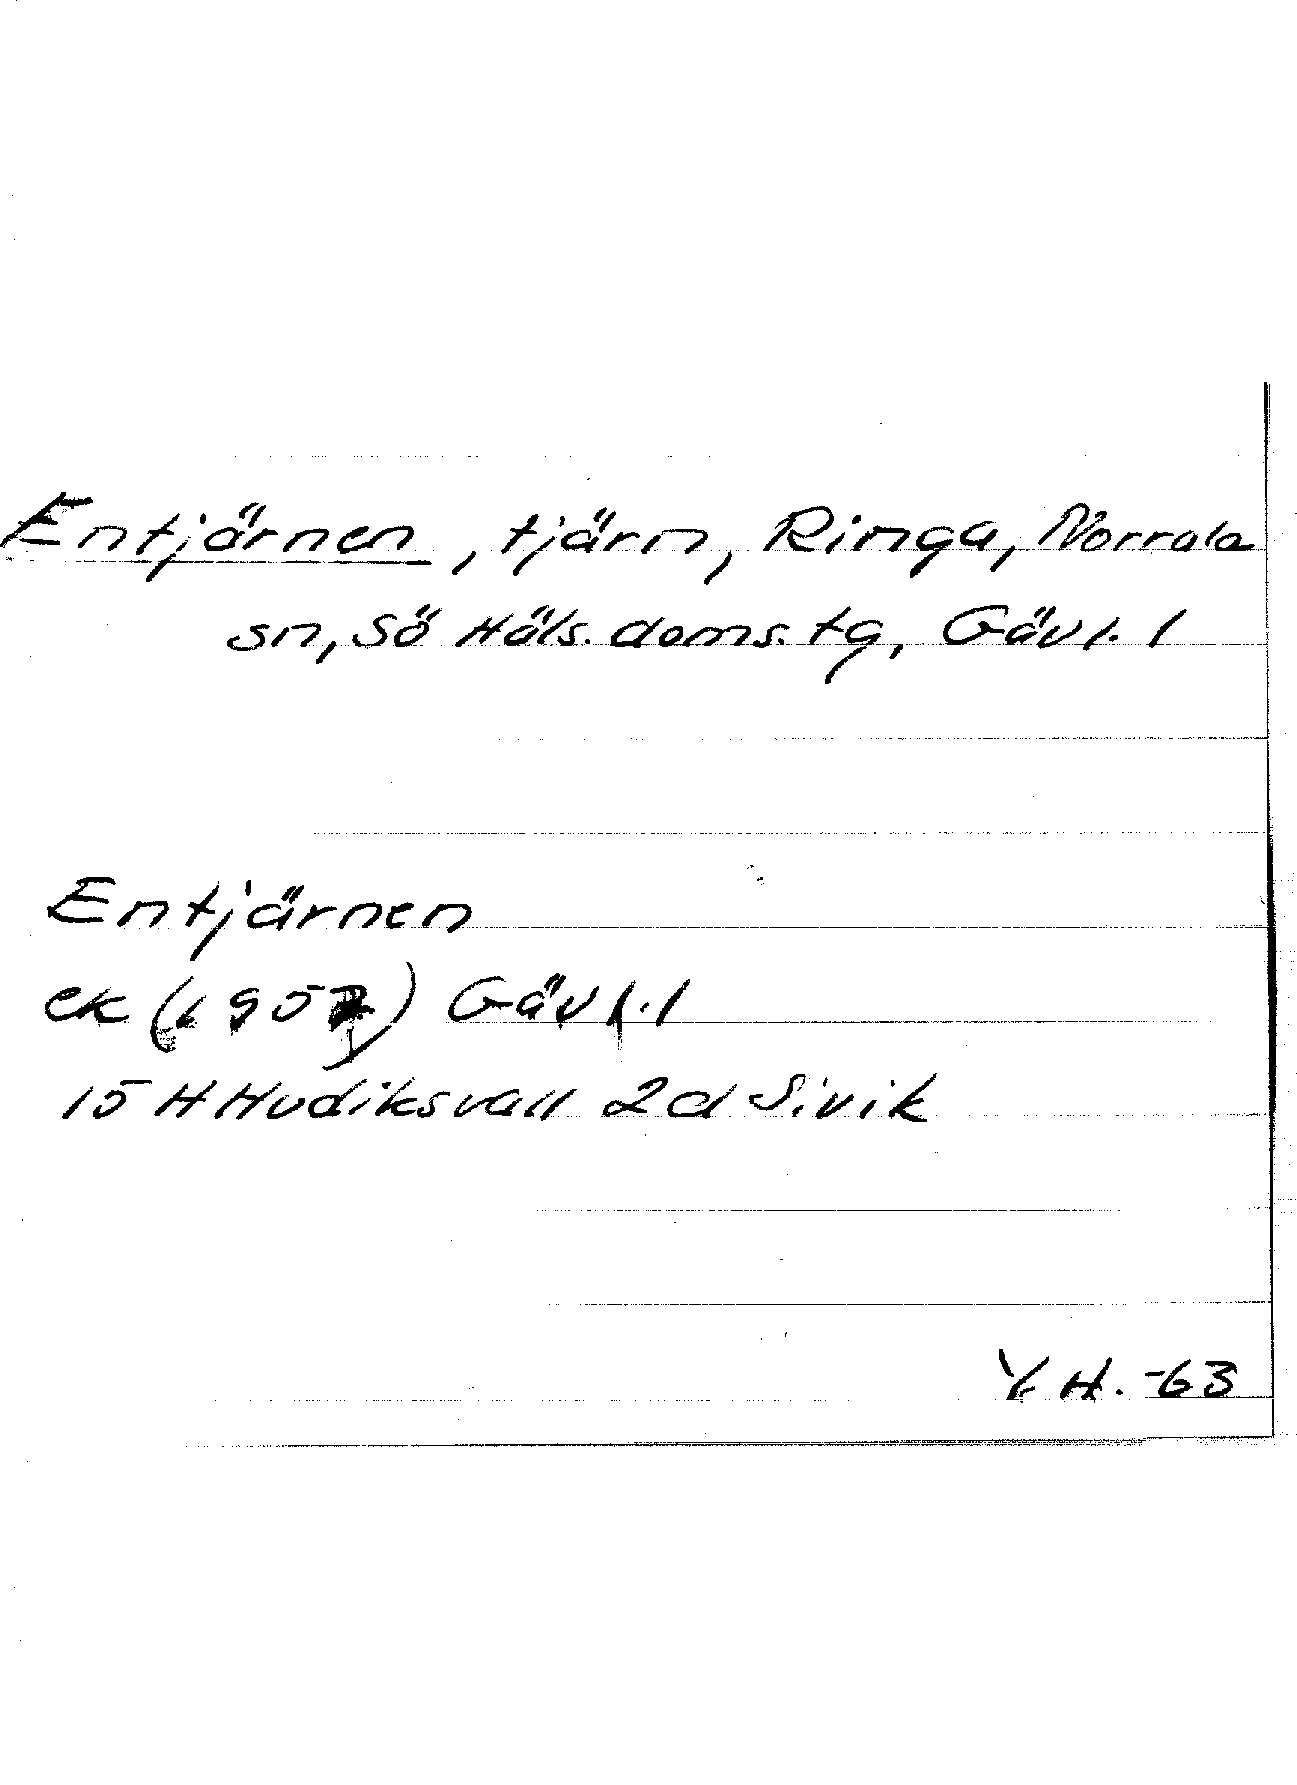 Entjärnen, tjärn, Ringa, Norrala
sn, Sö Häls. doms. tg, Gävl. l
Entjärnen
ek (1957) Gävl. l
15 H Hudiksvall 2d Sivik
Y H. -63